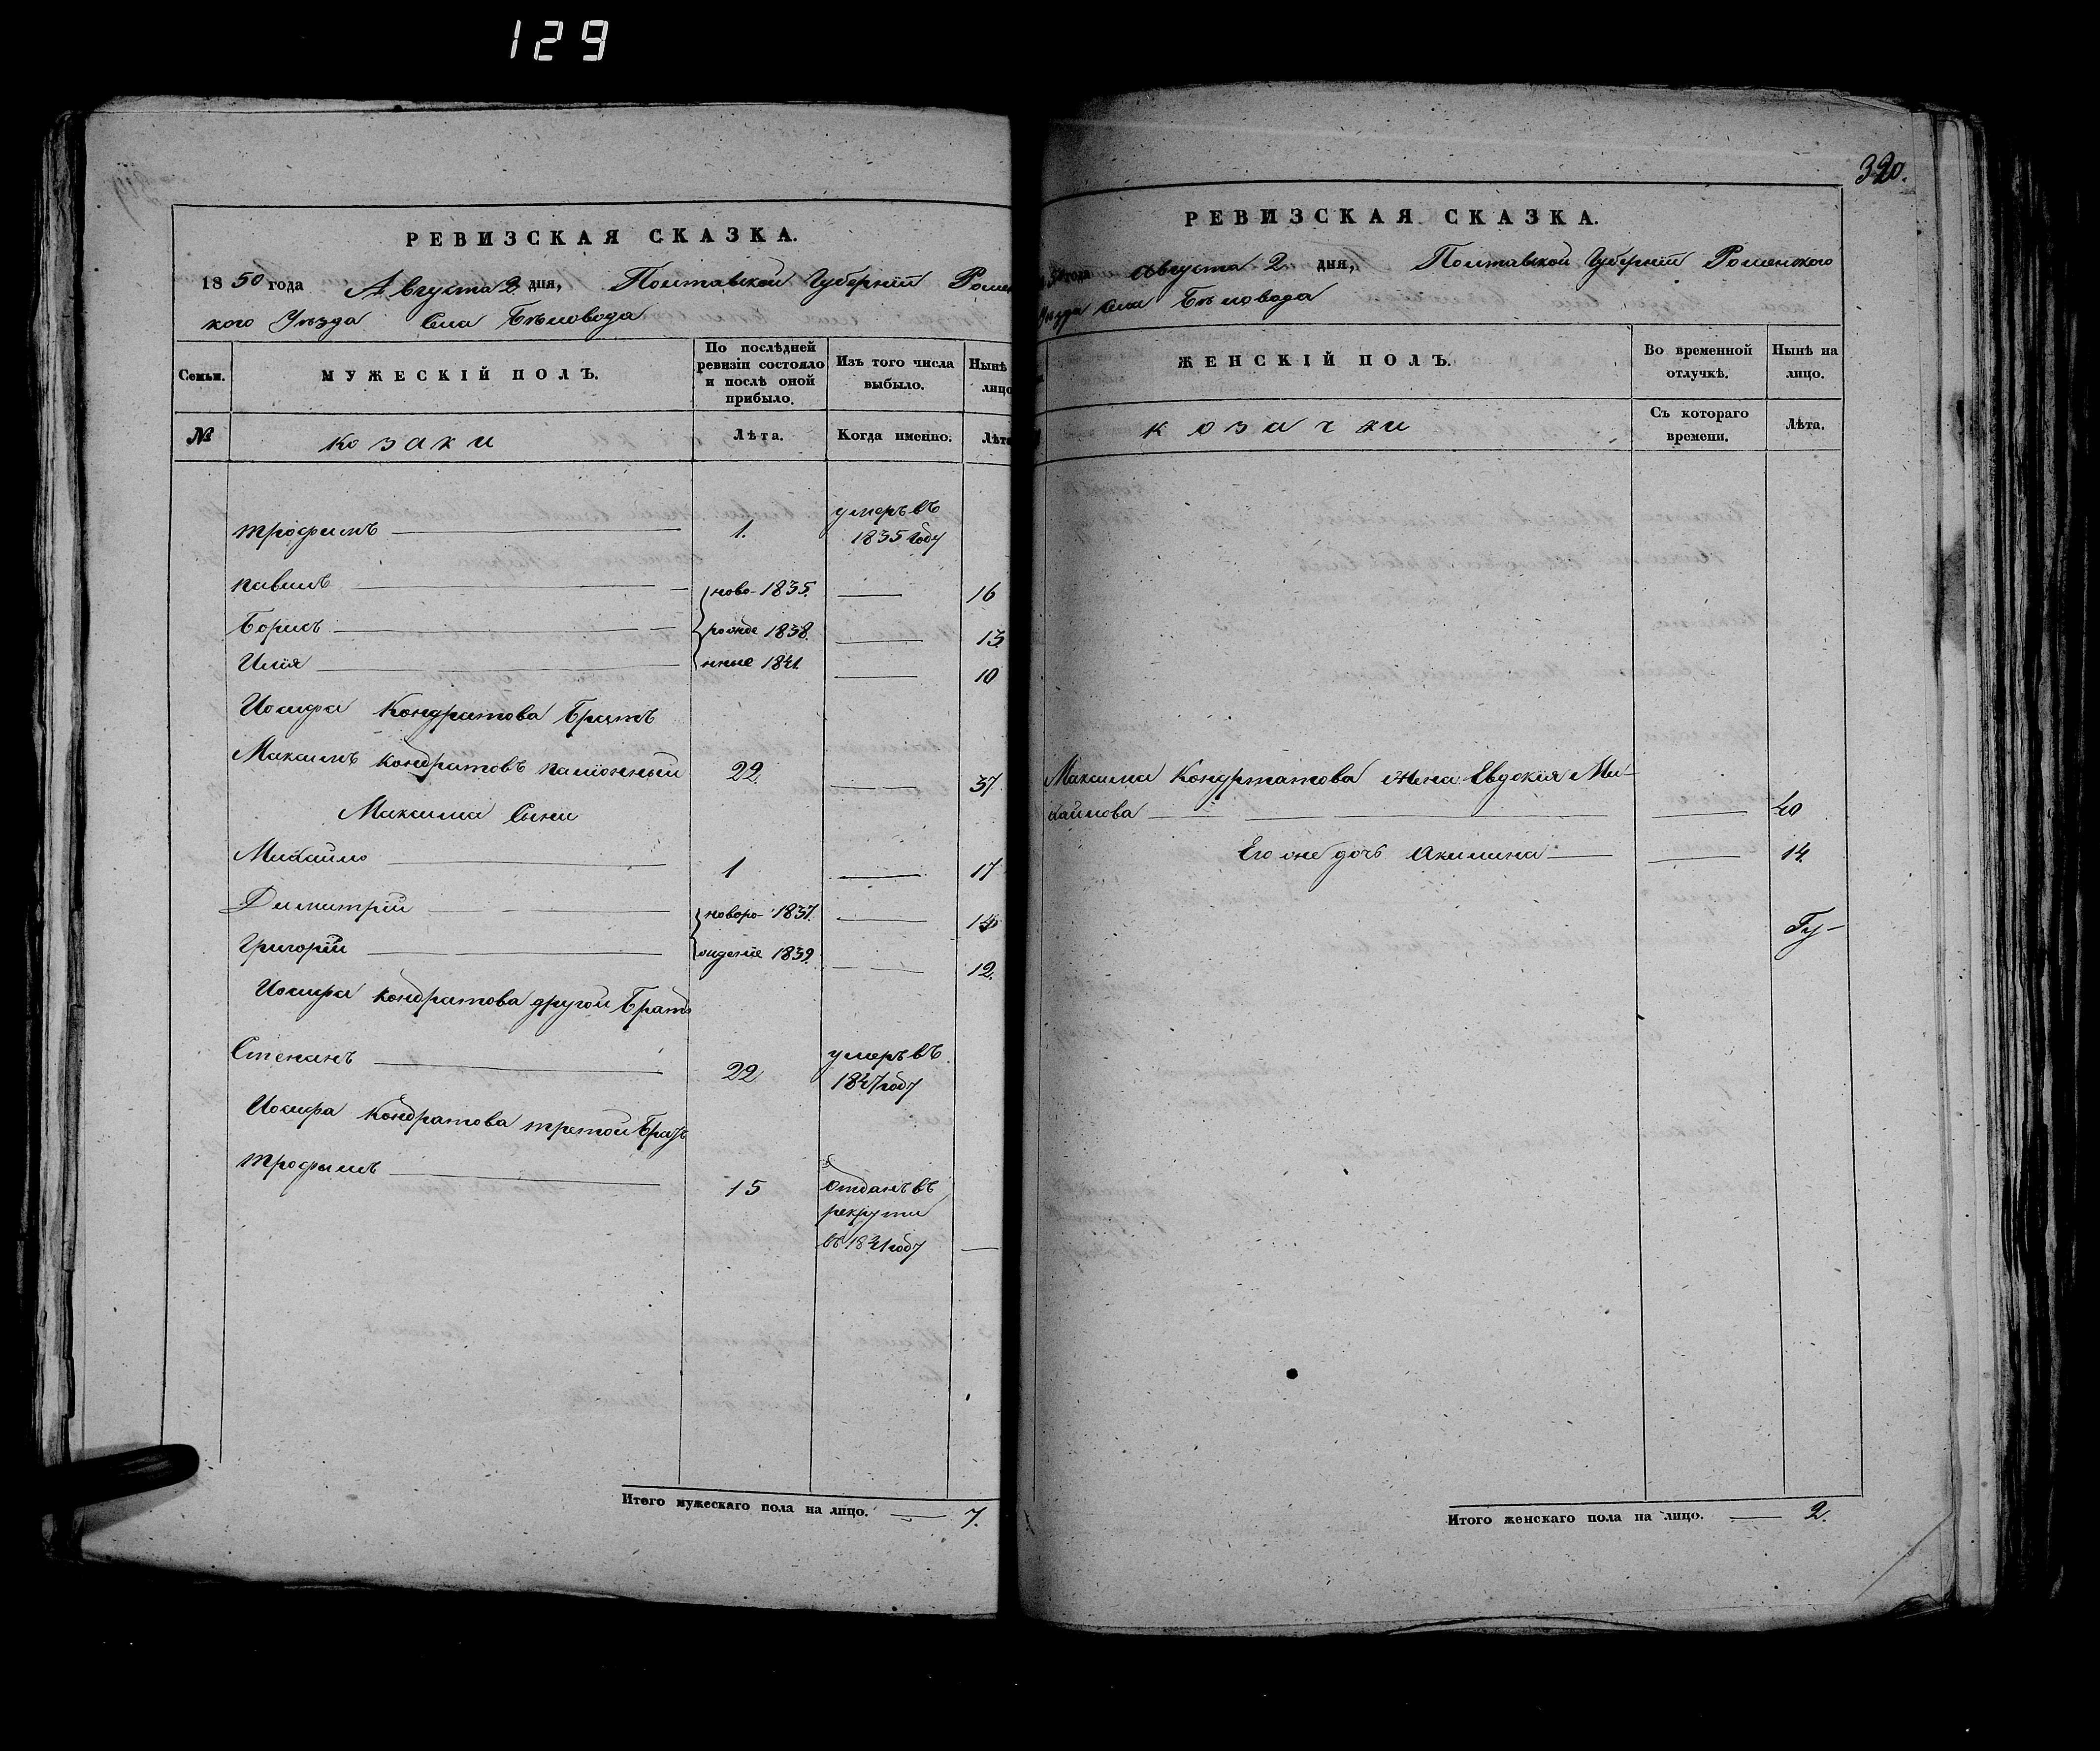 129
РЕВИЗСКАЯ СКАЗКА.
1850 года Августа 2 дня, Полтавской Губерніи Ромен
кого Уѣзда Села Бѣловода
Семьи. МУЖЕСКІЙ ПОЛЪ. По послѣдней ревизіи состояло и послѣ оной прибыло. Изъ того числа выбыло. Нынѣ лицо
№ козаки Лѣта. Когда именно. Лѣта
трофимъ 1. умеръ въ
1835 году
павилъ ново- 1835. 16
Борисъ рожде 1838. 13
Илія нные 1841. 10
Иосифа Кондратова Братъ
Максимъ Кондратовъ 22 37
Максима Сыни
Михайло 1 17
Димитрій новоро- 1837. 13
Григорій жденіе 1839. 12.
Иосифа Кондратова другой Братъ
Степанъ 22 умеръ въ
1847 году
Иосифа Кондратова третой Братъ
трофымъ 15 отданъ въ
рекрути
въ 1841 году
Итого мужескаго пола на лицо. 7.
320.
РЕВИЗСКАЯ СКАЗКА.
50 года Августа 2 дня, Полтавской Губерніи Роменского
Уѣзда Села Бѣловода
ЖЕНСКІЙ ПОЛЪ. Во временной отлучкѣ. Нынѣ на лицо.
козачки Съ котораго времени. Лѣта.
Максима Кондратова жена Евдокія Ми-
хайлова 40
Его же дочь Акилина 14.
Гу-
Итого женскаго пола на лицо. 2.